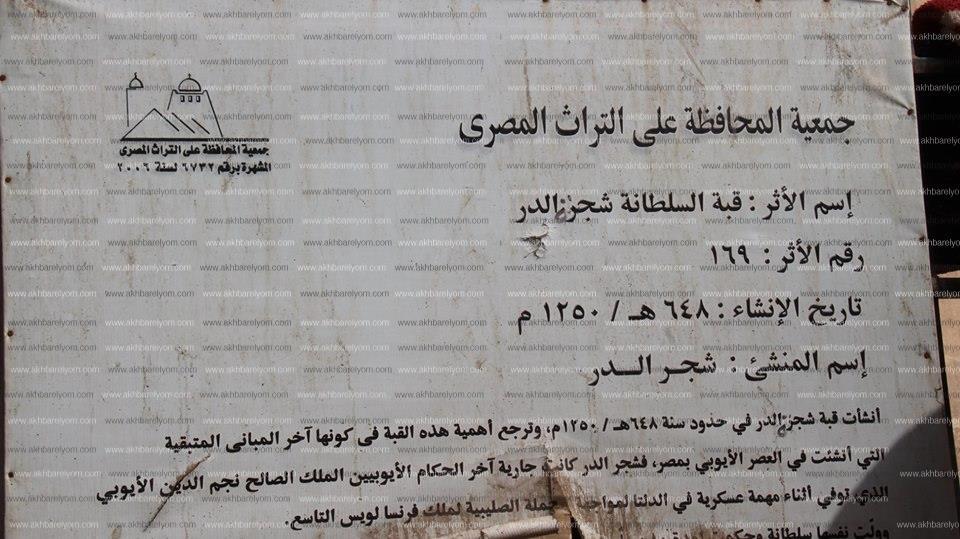 جمعية المحافظة على التراث المصرى
جمعية المحافظة على التراث المصرى
المشهرة برقم ٦٧٣٢ لسنة ٢٠٠٦
إسم الأثر : قبة السلطانة شجر الدر
رقم الأثر : ١٦٩
تاريخ الإنشاء : ٦٤٨ هـ / ١٢٥٠ م
إسم المنشئ : شجر الــدر
أنشأت قبة شجر الدر في حدود سنة ٦٤٨هـ / ١٢٥٠م، وترجع أهمية هذه القبة فى كونها آخر المبانى المتبقية
التي أنشئت في العصر الأيوبي بمصر، فشجر الدر كانت جارية آخر الحكام الأيوبيين الملك الصالح نجم الدين الأيوبي
الذي توفي أثناء مهمة عسكرية في الدلتا لمواجهة الصليبية لملك فرنسا لويس التاسع.
وولّت نفسها سلطانة
www.akhbarelyom.com